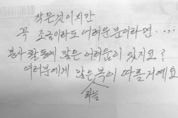 작은것이지만
꼭 조금이라도 여러분이라면....
봉사 활동에 많은 어려움이 있지요?
여러분에게 많은 복이 따를거예요
하늘